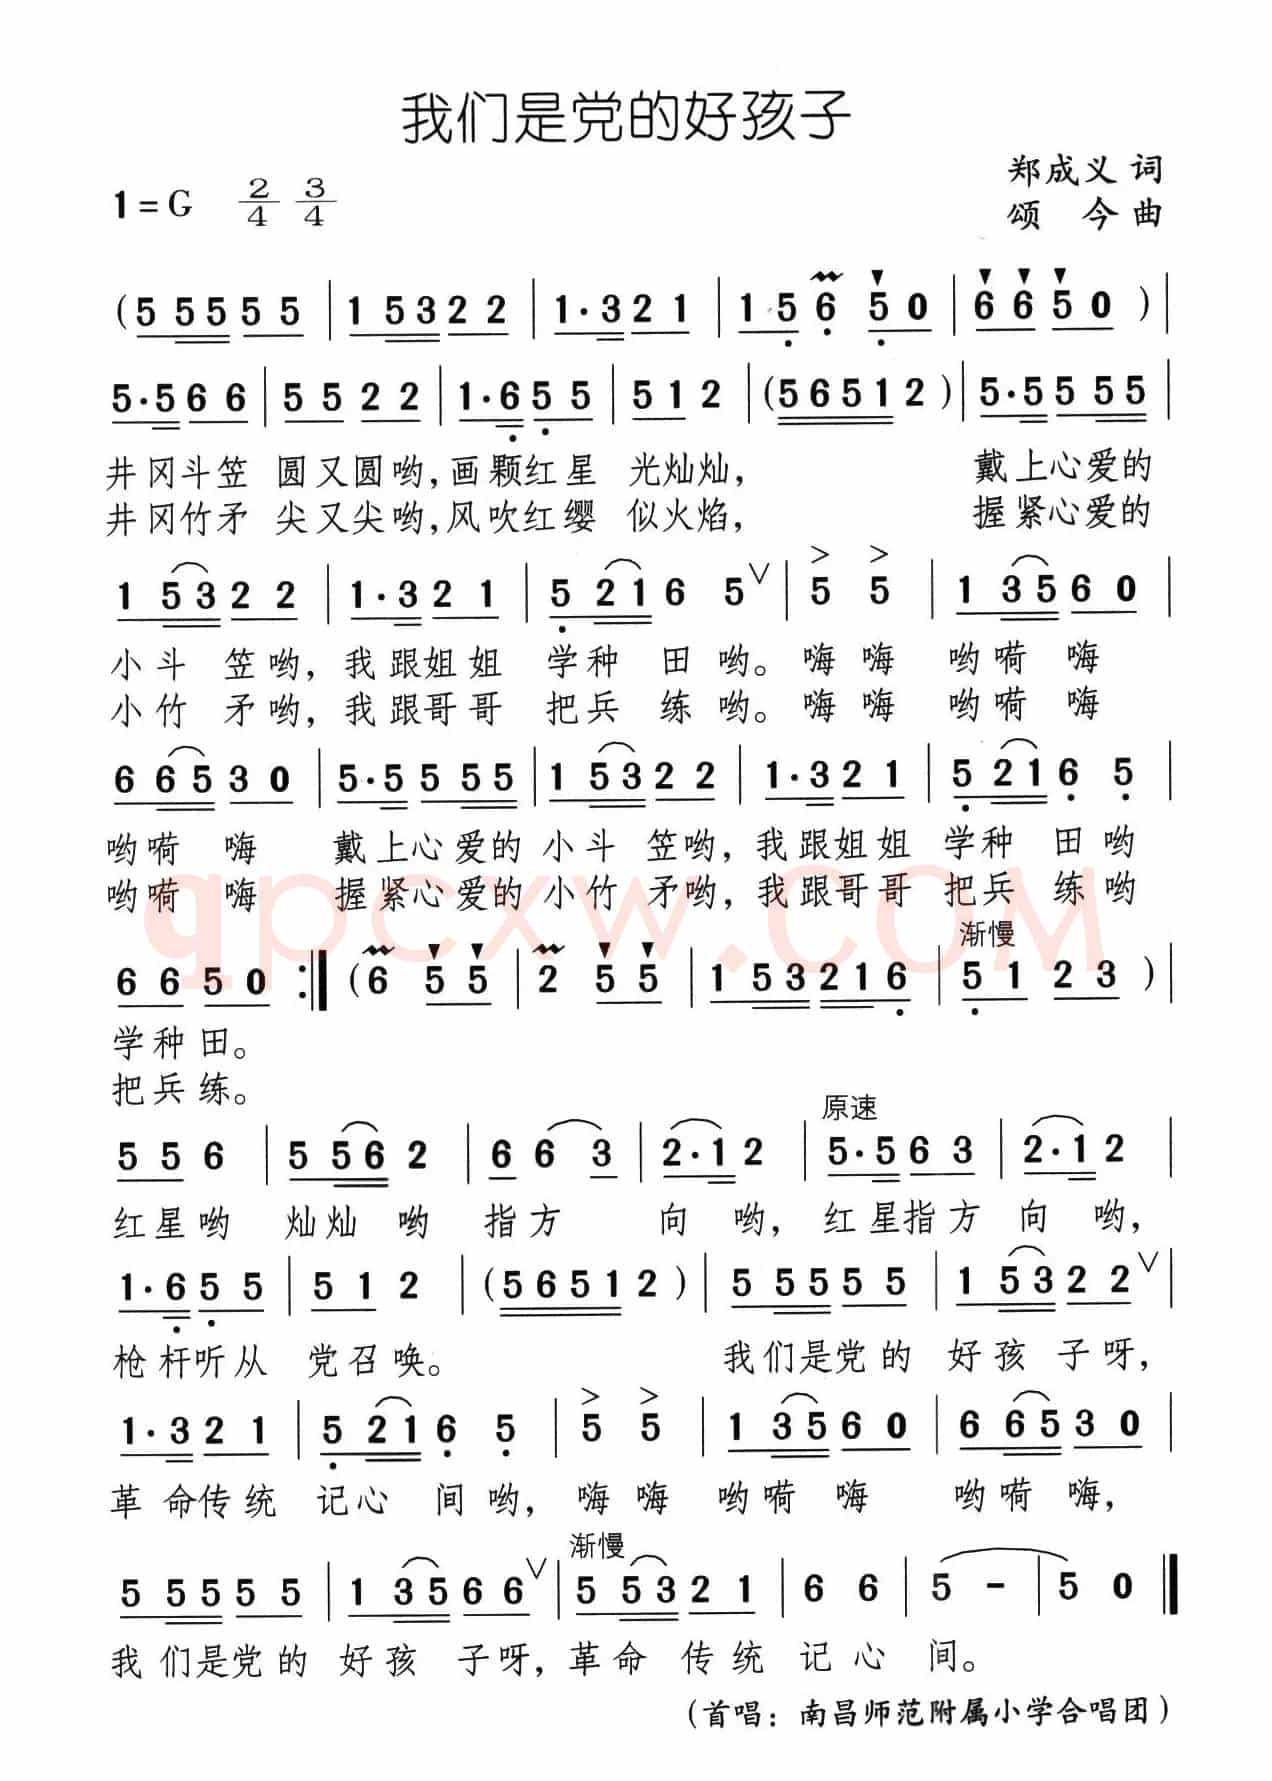 我们是党的好孩子
郑成义 词
1=G 2/4 3/4
颂 今 曲
(5 5 5 5 5 5 | 1 5 3 2 2 | 1·3 2 1 | 1 5 6 5 0 | 6 6 5 0 ) |
5·5 6 6 | 5 5 2 2 | 1·6 5 5 | 5 1 2 | (5 6 5 1 2 ) | 5·5 5 5 5 |
井冈斗笠 圆又圆哟,画颗红星 光灿灿, 戴上心爱的
井冈竹矛 尖又尖哟,风吹红缨 似火焰, 握紧心爱的
1 5 3 2 2 | 1·3 2 1 | 5 2 1 6 5 ∨ | 5 5 | 1 3 5 6 0 |
小斗 笠哟,我跟姐姐 学种 田哟。嗨嗨 哟嗬 嗨
小竹 矛哟,我跟哥哥 把兵 练哟。嗨嗨 哟嗬 嗨
6 6 5 3 0 | 5·5 5 5 5 | 1 5 3 2 2 | 1·3 2 1 | 5 2 1 6 5 |
哟嗬 嗨 戴上心爱的 小斗 笠哟,我跟姐姐 学种 田哟
哟嗬 嗨 握紧心爱的 小竹 矛哟,我跟哥哥 把兵 练哟
qpcxw.com
渐慢
6 6 5 0 :‖ (6 5 5 | 2 5 5 | 1 5 3 2 1 6 | 5 1 2 3 ) |
学种田。
把兵练。
原速
5 5 6 | 5 5 6 2 | 6 6 3 | 2·1 2 | 5·5 6 3 | 2·1 2 |
红星哟 灿灿 哟 指方 向 哟, 红星指方 向 哟,
1·6 5 5 | 5 1 2 | (5 6 5 1 2 ) | 5 5 5 5 5 | 1 5 3 2 2 ∨ |
枪杆听从 党召唤。 我们是党的 好孩 子呀,
1·3 2 1 | 5 2 1 6 5 | 5 5 | 1 3 5 6 0 | 6 6 5 3 0 |
革命传统 记心 间哟, 嗨嗨 哟嗬 嗨 哟嗬 嗨,
渐慢
5 5 5 5 5 | 1 3 5 6 6 ∨ | 5 5 3 2 1 | 6 6 | 5 - | 5 0 ‖
我们是党的 好孩 子呀,革命 传统 记心 间。
(首唱:南昌师范附属小学合唱团)